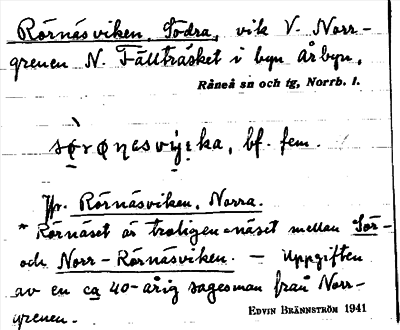 Rörnäsviken, Södra, vik V. Norr-
grenen N. Fällträsket i byn Årbyn,
Råneå sn och tg, Norrb. l.
sø̀rønesvı̨́ka, bf. fem.
Jfr. Rörnäsviken, Norra.
* Rörnäset är troligen näset mellan Sör-
och Norr-Rörnäsviken. — Uppgiften
av en ca 40-årig sagesman från Norr-
grenen.
EDVIN BRÄNNSTRÖM 1941